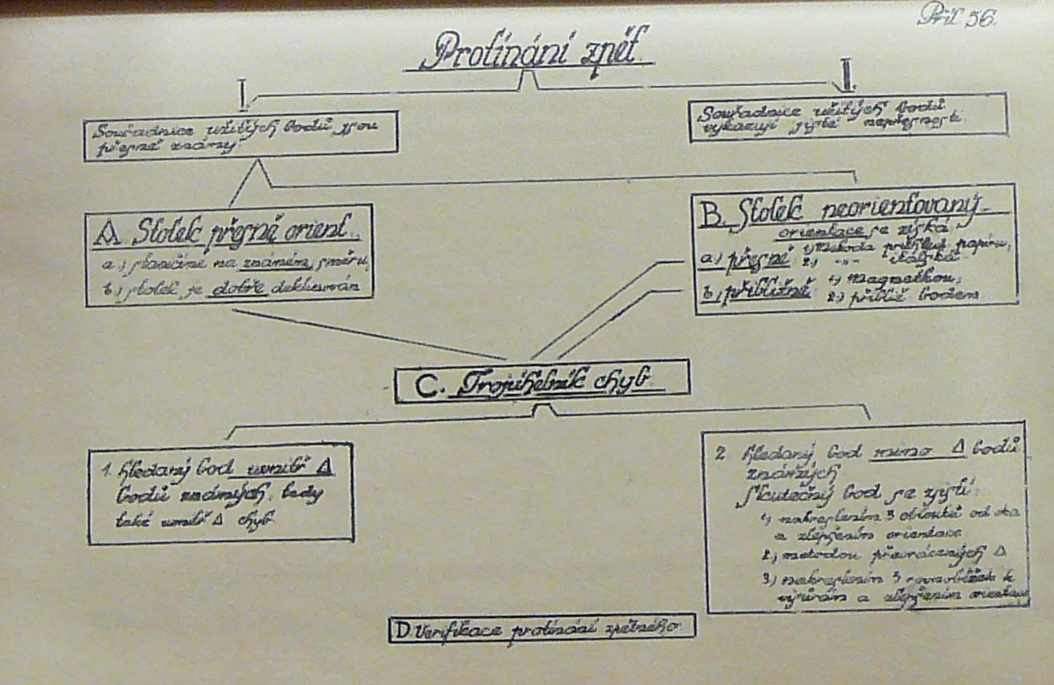 Příl 56.
Protínání zpět.
I
II
Souřadnice užitých bodů jsou
přesně známy.
Souřadnice užitých bodů
vykazují jisté nepřesnosti.
A. Stolek přesně orient.
a.) stančíme na známém směru,
b.) stolek je dobře deklinován
B. Stolek neorientovaný.
orientace se získá
a.) přesně 1.) metoda průhled. papíru,
2.) -"-
b.) přibližně 1.) magnetkou,
2.) přibliž bodem
C. Trojúhelník chyb.
1. Hledaný bod uvnitř Δ
bodů známých, tedy
také uvnitř Δ chyb
2. Hledaný bod mimo Δ bodů
známých
Skutečný bod se zjistí:
1.) nakreslením 3 oblouků od oka
a zlepšením orientace
2.) metodou převrácených Δ
3.) nakreslením 3 rovnoběžek k
výsekám a zlepšením orientace
D. Verifikace protínání zpětného.